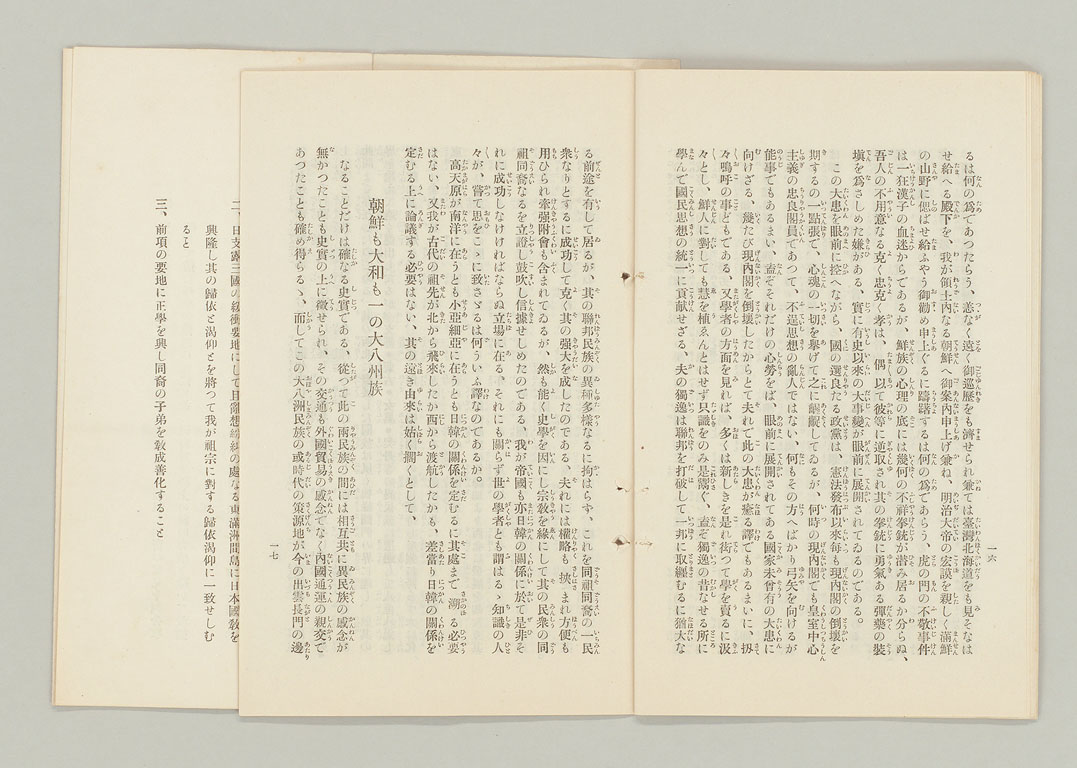 一六
るは何の爲であつたらう、恙なく遠く御巡歷をも濟せられ兼ては臺灣北海道をも見そなは
せ給へる殿下を、我が領土内なる朝鮮へ御案内申上げ兼ね、明治大帝の宏謨を親しく滿鮮
の山野に偲ばせ給ふやう御勸め申上ぐるに躊躇するは何の爲であらう、虎の門の不敬事件
は一狂漢子の血迷からであるが、鮮族の心理の底には幾何の不祥拳銃が潜み居るか分らぬ、
吾人の不用意なる克く忠克く孝は、偶以て彼等に逆取され其の拳銃に勇氣ある彈藥の裝
塡を爲さしめた嫌がある、實に有史以來の大事變が眼前に展開されてゐるのである。
この大患を眼前に控へながら、國の選良たる政黨は、憲法發布以來每も現内閣の倒壞を
期するの一點張で、心魂の一切を擧げて之に齷齪してゐるが、何時の現内閣でも皇室中心
主義の忠良閣員であつて、不逞思想の亂人ではない、何もその方へばかり弓矢を向けるが
能事でもあるまい、盍ぞそれだけの心勞をば、眼前に展開されてある國家未曾有の大患に
向けざる、幾たび現内閣を倒壞したからとて夫れで此の大患が癒る譯でもあるまいに、扨
々嗚呼の事どもである、又學者の方面を見れば、多くは新しきを是れ衒つて學を賣るに汲
々とし、鮮人に對しても慧を植ゑんとはせず只識をのみ是れ鬻ぐ、盍ぞ獨逸の昔なせる所に
學んで國民思想の統一に貢獻せざる、夫の獨逸は聯邦を打破して一邦に取纏むるに猶大な
る前途を有して居るが、其の聯邦民族の異種多樣なるに拘はらず、これを同祖同裔の一民
衆なりとするに成功して克く其の强大を成したのである、夫れには權略も挾まれ方便も
用ひられ牽强附會も含まれてゐるが、然も能く史學を因にし宗敎を緣にして其の民衆の同
祖同裔なるを立證し鼓吹し信據せしめたのである、我が帝國も亦日韓の關係に於て是非そ
れに成功しなければならぬ立場に在る、それにも關らず世の學者とも謂はるゝ知識の人
々が、嘗て思をこゝに致さざるは何ういふ譯なのであるか。
高天原が南洋に在うとも小亞細亞に在うとも日韓の關係を定むるに其處まで溯る必要
はない、又我が古代の祖先が北から飛來したか西から渡航したかも、差當り日韓の關係を
定むる上に論議する必要はない、其の遠き由來は姑く擱くとして、
朝鮮も大和も一の大八州族
なることだけは確なる史實である、從つて此の兩民族の間には相互共に異民族の感念が
無かつたことも史實の上に徵せられ、その交通も外國貿易の感念でなく內國通運の親交で
あつたことも確め得らるゝ、而してこの大八洲民族の或時代の策源地が今の出雲長門の邊
一七
二、日支露三國の緩衝要地にして且亂想の處なる東滿洲間島に日本國敎を
興隆し其の歸依と渴仰とを將つて我が祖宗に對する歸依渴仰に一致せしむ
ると
三、前項の要地に正學を興し同裔の子弟を敎成善化すること